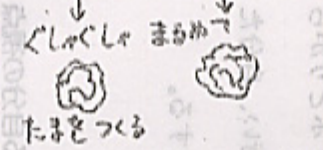 ぐしゃぐしゃ まるめて
たまをつくる